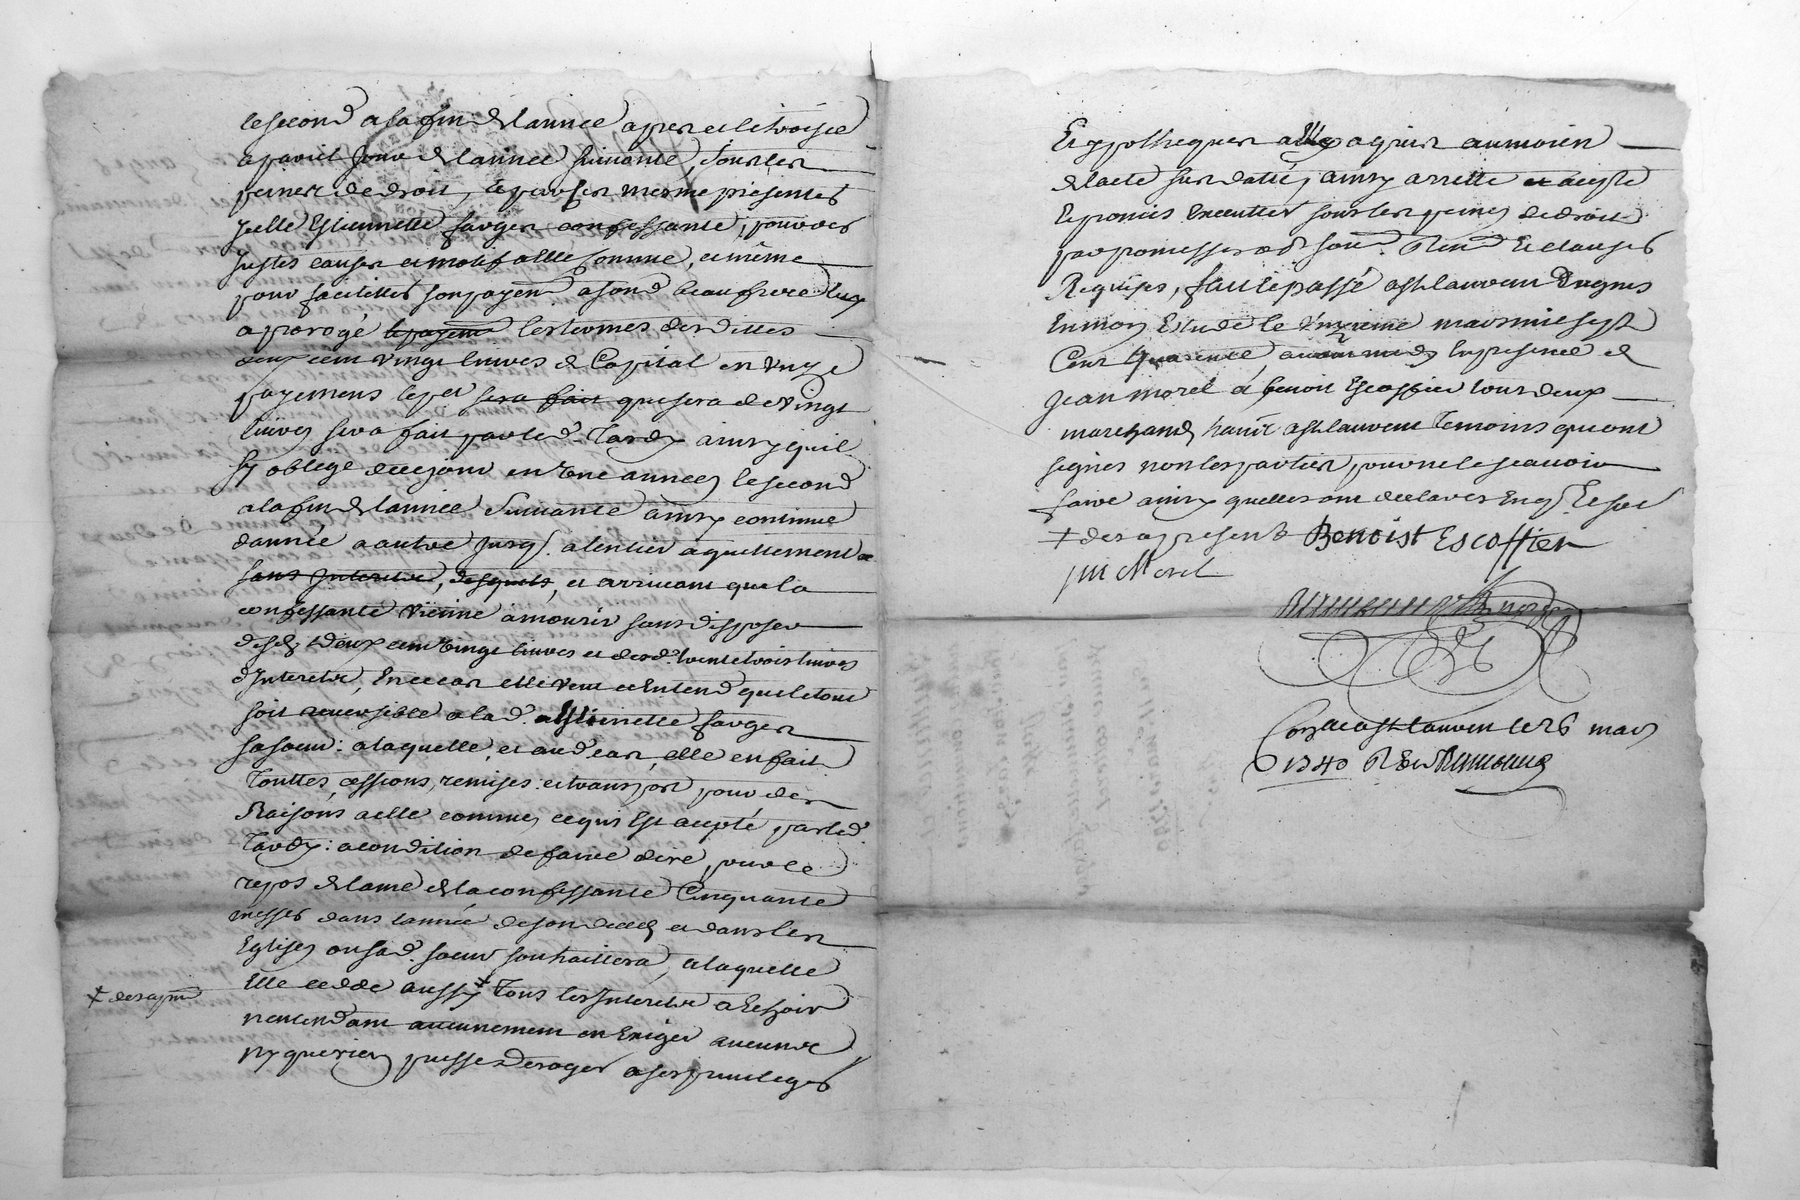 le second a la fin de lannée apres et le troisie
a pareil jour de lannée suivante, sous les
peines de droit, et par ses mesme presentes
jcelle Estiennette farges confessante, pour des
justes causes et motif a elle connue, et même
pour faciliter son payemt a sond beaufrere luy
a prorogé le payemt les termes desdittes
deux cent vingt livres de Capital en unze
payemens le per sera fait que sera de vingt
livres sera fait par led. Tardy ainsy quil
sy oblege de ce jour en une année, le second
a la fin de lannée Suivante ainsy continue
dannée a autre jusq. a lentier aquittement
sans Interetz, desquels, et arrivant que la
confessante vienne a mourir sans disposer
desd. deux cent vingt livres et desd. trente trois livres
dInteretz, En ce cas elle veut et Entend que le tout
soit reversible a lad. Estiennette farges
sa soeur: a laquelle, et aud. cas, elle en fait
Touttes, cessions, remises et transport pour des
Raisons a elle connues ce qui Est acepté par led.
Tardy: a condition de faire dire, pour le
repos de lame de la confessante Cinquante
messes dans lannée de son deces et dans les
Eglises ou sad. soeur souhaittera, a laquelle
Elle cedde aussy ‡ Tous les Interetz a Echoir
‡ des apnt
nentendant aucunement en Exiger aucuns
ny que rien puisse Deroger a ses privileges
Et ypotheques a elle aquis au moien
de lacte sus datté, ainsy arretté et acepté
Et promis Executter sous les peines de droit
par promesses Rend Et clauses
Requises, fait et passé a St lauvent Dugnes
En mon Etude le unzieme mars mil sept
Cent quarante, avant midy En presence de
Jean morel et benoit Escoffier tous deux
marchands hantz a St lauvent Temoins qui ont
signés non les parties pour ne le scavoir
faire ainsy quelles ont declarés Enq. Et soe
‡ des a present Benoist Escoffier
jm Morel
Con a St lauvent le 26 mars
1740